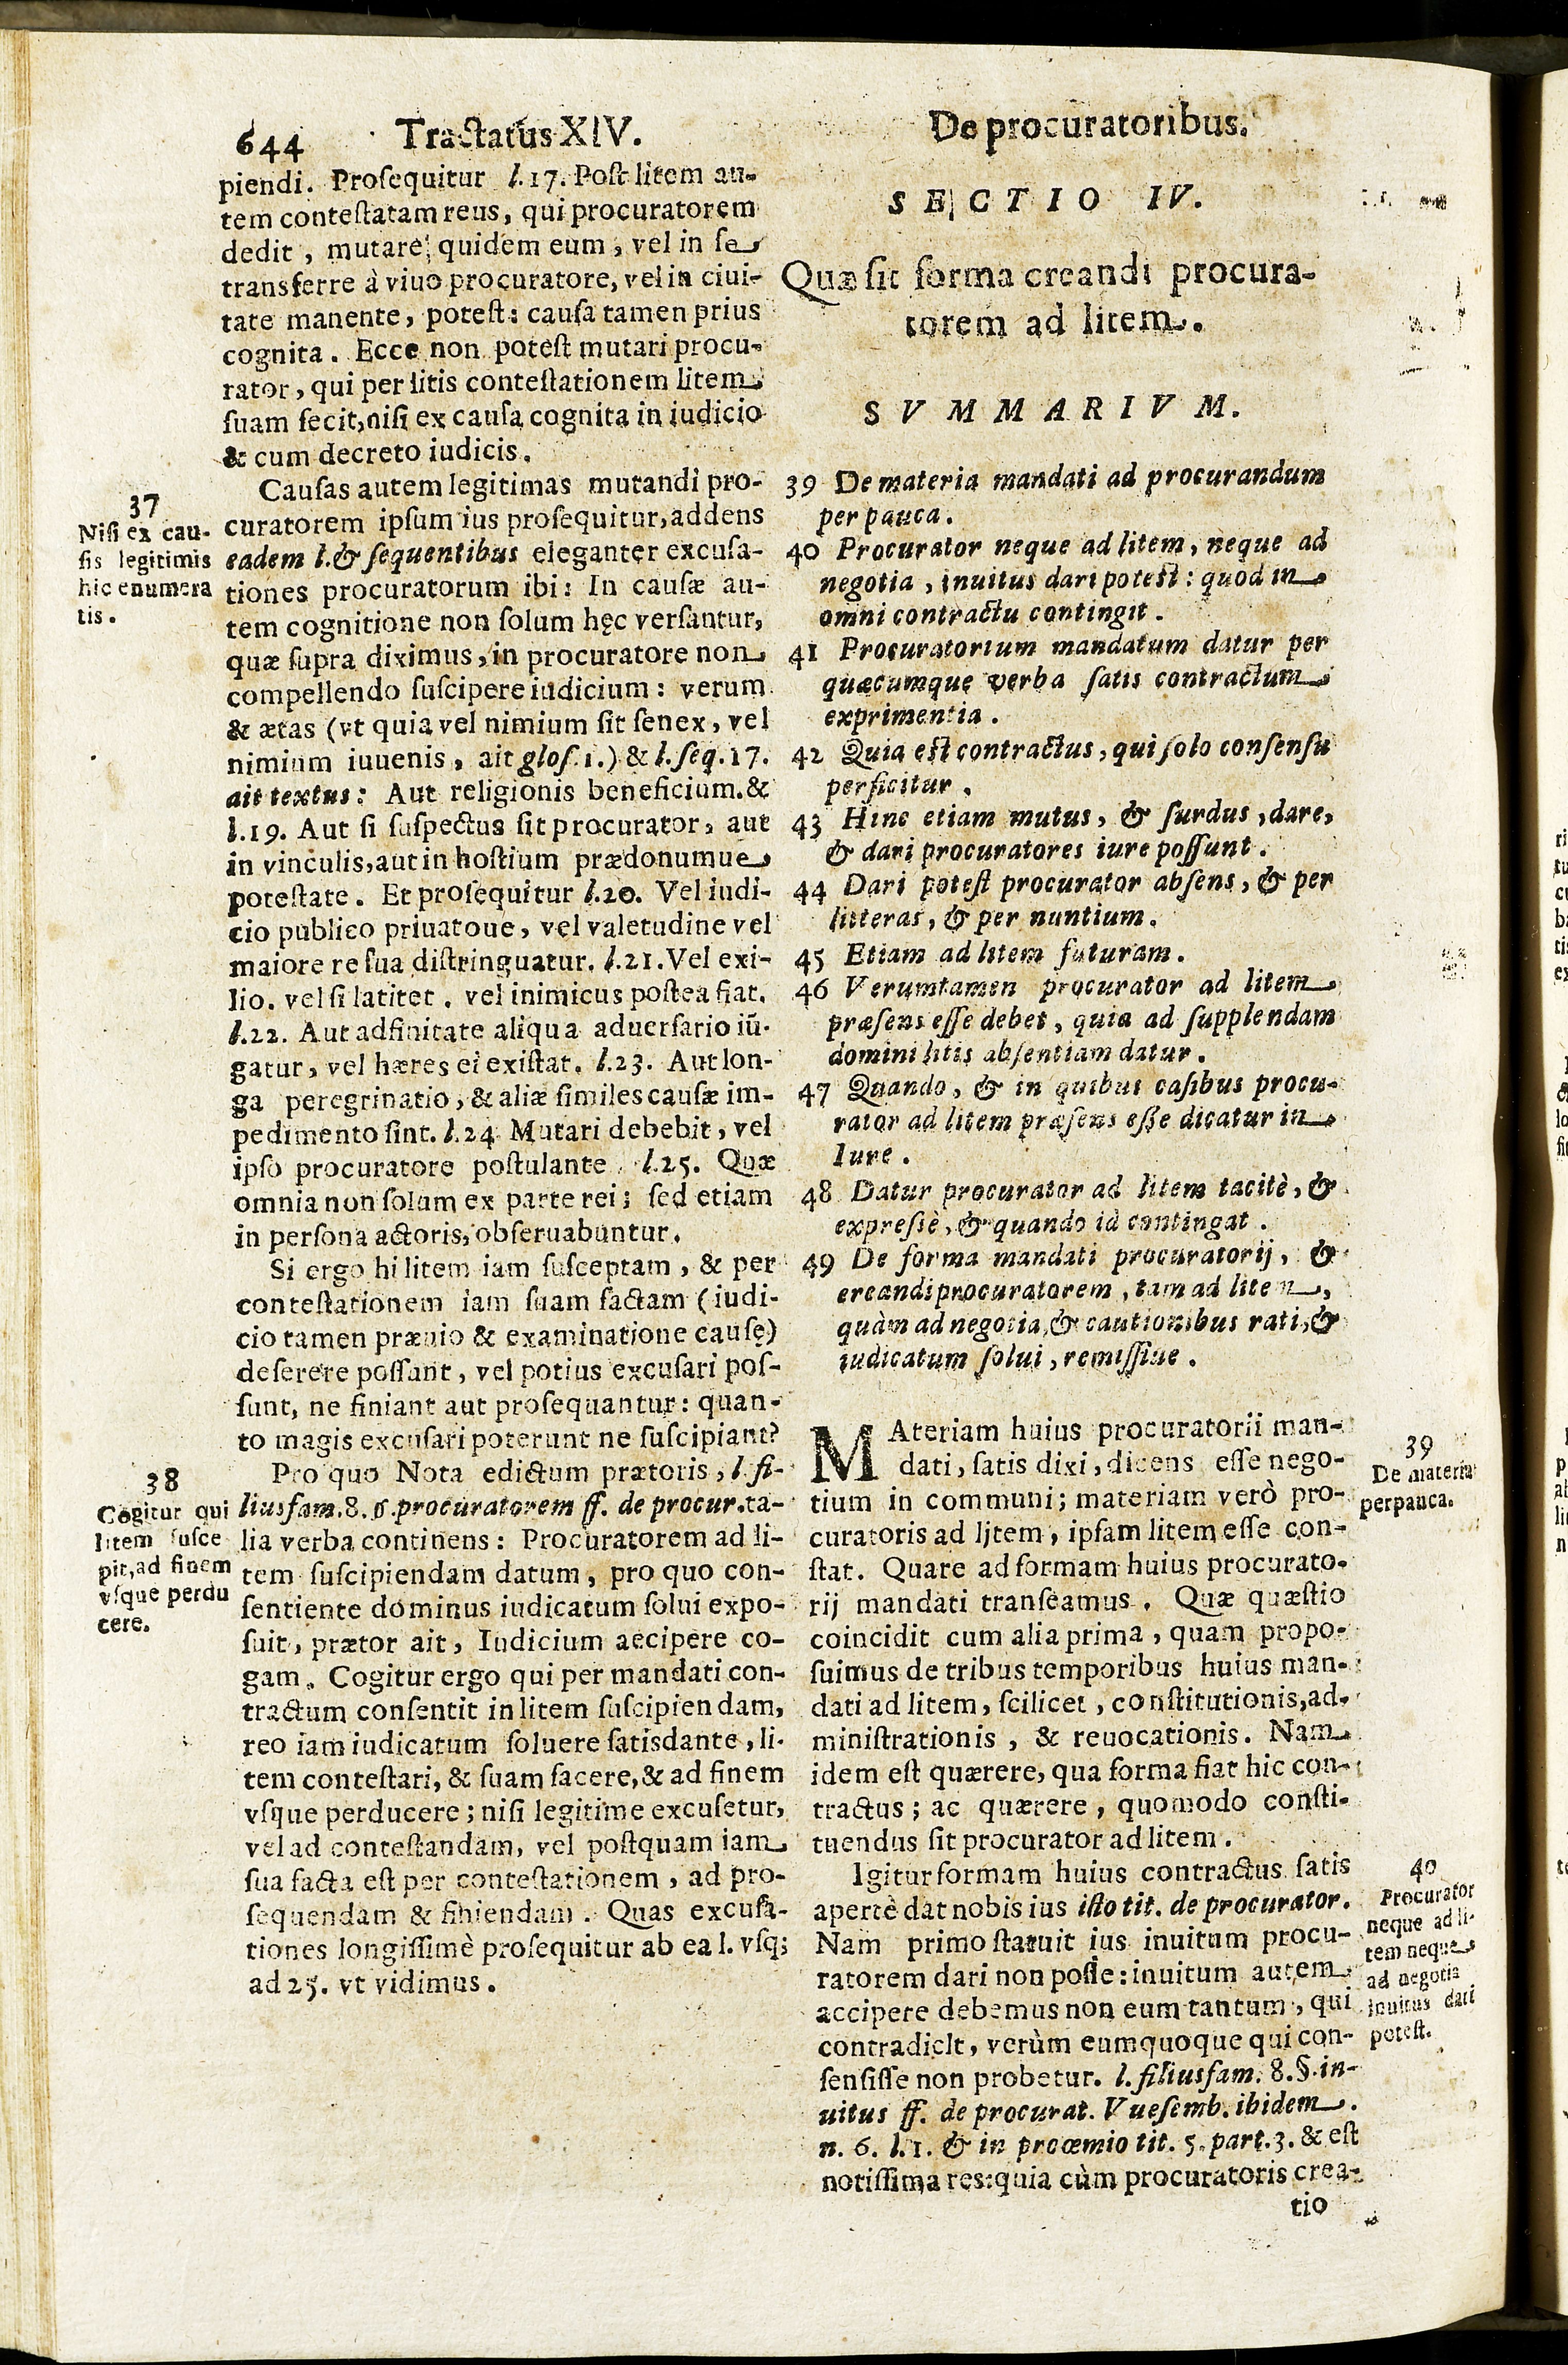 644 Tractatus XIV.
piendi. Proſequitur l.17. Poſt litem au-
tem conteſtatam reus, qui procuratorem
dedit, mutare quidem eum, vel in ſe
transferre à viuo procuratore, vel in ciui-
tate manente, poteſt: cauſa tamen prius
cognita. Ecce non poteſt mutari procu-
rator, qui per litis conteſtationem litem
ſuam fecit, niſi ex cauſa cognita in iudicio
& cum decreto iudicis.
37
Niſi ex cau-
ſis legitimis
hic enumera
tis.
Cauſas autem legitimas mutandi pro-
curatorem ipſum ius proſequitur, addens
eadem l. & ſequentibus eleganter excuſa-
tiones procuratorum ibi: In cauſæ au-
tem cognitione non ſolum hęc verſantur,
quæ ſupra diximus, in procuratore non
compellendo ſuſcipere iudicium: verum
& ætas (vt quia vel nimium ſit ſenex, vel
nimium iuuenis, ait gloſ. 1.) & l. ſeq. 17.
ait textus: Aut religionis beneficium. &
l.19. Aut ſi ſuſpectus ſit procurator, aut
in vinculis, aut in hoſtium prædonumue
poteſtate. Et proſequitur l.20. Vel iudi-
cio publico priuatoue, vel valetudine vel
maiore re ſua diſtringuatur. l.21. Vel exi-
lio. vel ſi latitet. vel inimicus poſtea fiat.
l.22. Aut adfinitate aliqua aduerſario iũ-
gatur, vel hæres ei exiſtat. l.23. Aut lon-
ga peregrinatio, & aliæ ſimiles cauſæ im-
pedimento ſint. l.24 Mutari debebit, vel
ipſo procuratore poſtulante l.25. Quæ
omnia non ſolum ex parte rei; ſed etiam
in perſona actoris, obſeruabuntur.
Si ergo hi litem iam ſuſceptam, & per
conteſtationem iam ſuam factam (iudi-
cio tamen præuio & examinatione cauſę)
deſerere poſſunt, vel potius excuſari poſ-
ſunt, ne finiant aut proſequantur: quan-
to magis excuſari poterunt ne ſuſcipiant?
38
Cogitur qui
litem ſuſce
pit, ad finem
vſque perdu
cere.
Pro quo Nota edictum prætoris, l. fi-
liusfam. 8. §. procuratorem ff. de procur. ta-
lia verba continens: Procuratorem ad li-
tem ſuſcipiendam datum, pro quo con-
ſentiente dominus iudicatum ſolui expo-
ſuit, prætor ait, Iudicium accipere co-
gam. Cogitur ergo qui per mandati con-
tractum conſentit in litem ſuſcipiendam,
reo iam iudicatum ſoluere ſatisdante, li-
tem conteſtari, & ſuam facere, & ad finem
vſque perducere; niſi legitime excuſetur,
vel ad conteſtandam, vel poſtquam iam
ſua facta eſt per conteſtationem, ad pro-
ſequendam & finiendam. Quas excuſa-
tiones longiſſimè proſequitur ab ea l. vſq;
ad 25. vt vidimus.
De procuratoribus.
SECTIO IV.
Quæ ſit forma creandi procura-
torem ad litem.
SVMMARIVM.
39 De materia mandati ad procurandum
perpauca.
40 Procurator neque ad litem, neque ad
negotia, inuitus dari poteſt: quod in
omni contractu contingit.
41 Procuratorium mandatum datur per
quæcumque verba ſatis contractum
exprimentia.
42 Quia eſt contractus, qui ſolo conſenſu
perficitur.
43 Hinc etiam mutus, & ſurdus, dare,
& dari procuratores iure poſſunt.
44 Dari poteſt procurator abſens, & per
litteras, & per nuntium.
45 Etiam ad litem futuram.
46 Verumtamen procurator ad litem
præſens eſſe debet, quia ad ſupplendam
domini litis abſentiam datur.
47 Quando, & in quibus caſibus procu-
rator ad litem præſens eſſe dicatur in
Iure.
48 Datur procurator ad litem tacitè, &
expreſsè, & quando id contingat.
49 De forma mandati procuratorij, &
creandi procuratorem, tam ad litem,
quàm ad negotia, & cautionibus rati, &
iudicatum ſolui, remiſſiue.
MAteriam huius procuratorii man-
dati, ſatis dixi, dicens eſſe nego-
tium in communi; materiam verò pro-
curatoris ad ljtem, ipſam litem eſſe con-
ſtat. Quare ad formam huius procurato-
rij mandati tranſeamus. Quæ quæſtio
coincidit cum alia prima, quam propo-
ſuimus de tribus temporibus huius man-
dati ad litem, ſcilicet, conſtitutionis, ad-
miniſtrationis, & reuocationis. Nam
idem eſt quærere, qua forma fiat hic con-
tractus; ac quærere, quomodo conſti-
tuendus ſit procurator ad litem.
39
De materia
perpauca.
Igitur formam huius contractus ſatis
apertè dat nobis ius iſto tit. de procurator.
Nam primo ſtatuit ius inuitum procu-
ratorem dari non poſſe: inuitum autem
accipere debemus non eum tantum, qui
contradicIt, verùm eum quoque qui con-
ſenſiſſe non probetur. l. filiusfam. 8. §. in-
uitus ff. de procurat. Vueſemb. ibidem.
n. 6. l. 1. & in proœmio tit. 5. part. 3. & eſt
notiſſima res: quia cùm procuratoris crea-
tio
40
Procurator
neque ad li-
tem neque
ad negotia
inuitus dari
poteſt.